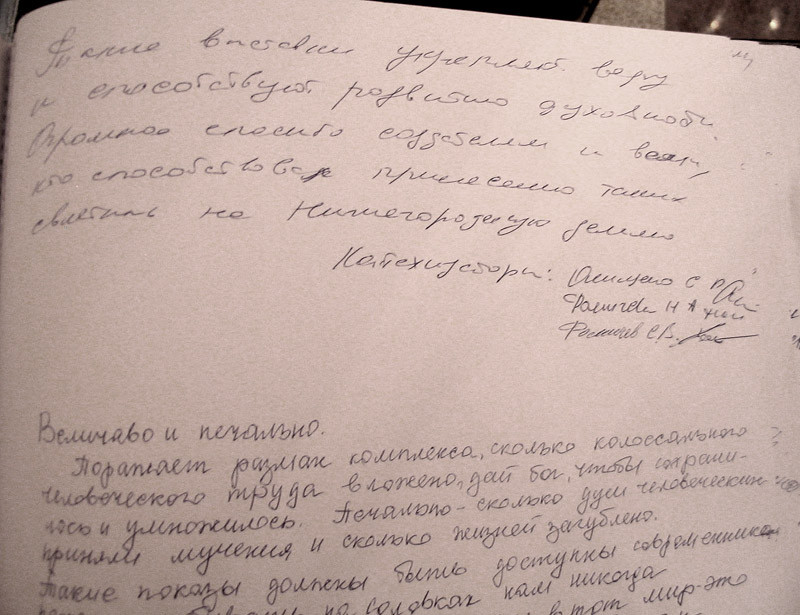 Такие выставки укрепляют веру
и способствуют развитию духовности.
Огромное спасибо создателям и всем,
кто способствовал принесению таких
святынь на Нижегородскую землю
Катехизаторы:
С Р
Н А
Фомичев С.В.
Величаво и печально.
Поражает размах комплекса, сколько колоссального
человеческого труда вложено, дай бог, чтобы сохрани-
лось и умножилось. Печально - сколько душ человеческих
приняли мучения и сколько жизней загублено.
Такие показы должны быть доступны современникам
на Соловках нам никогда
в тот мир-это